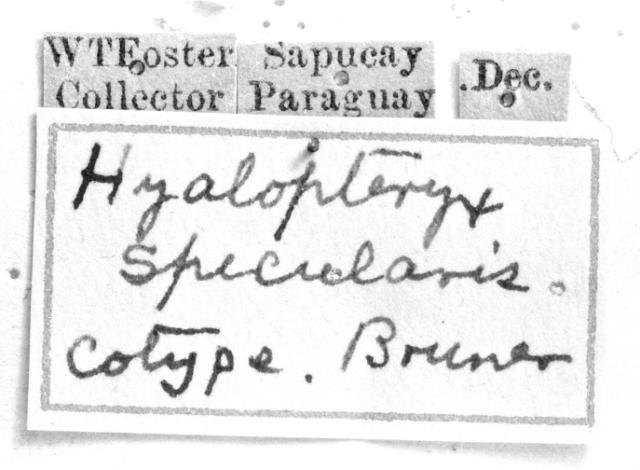 WTFoster
Collector
Sapucay
Paraguay
.Dec.
Hyalopteryx
specularis.
cotype. Bruner